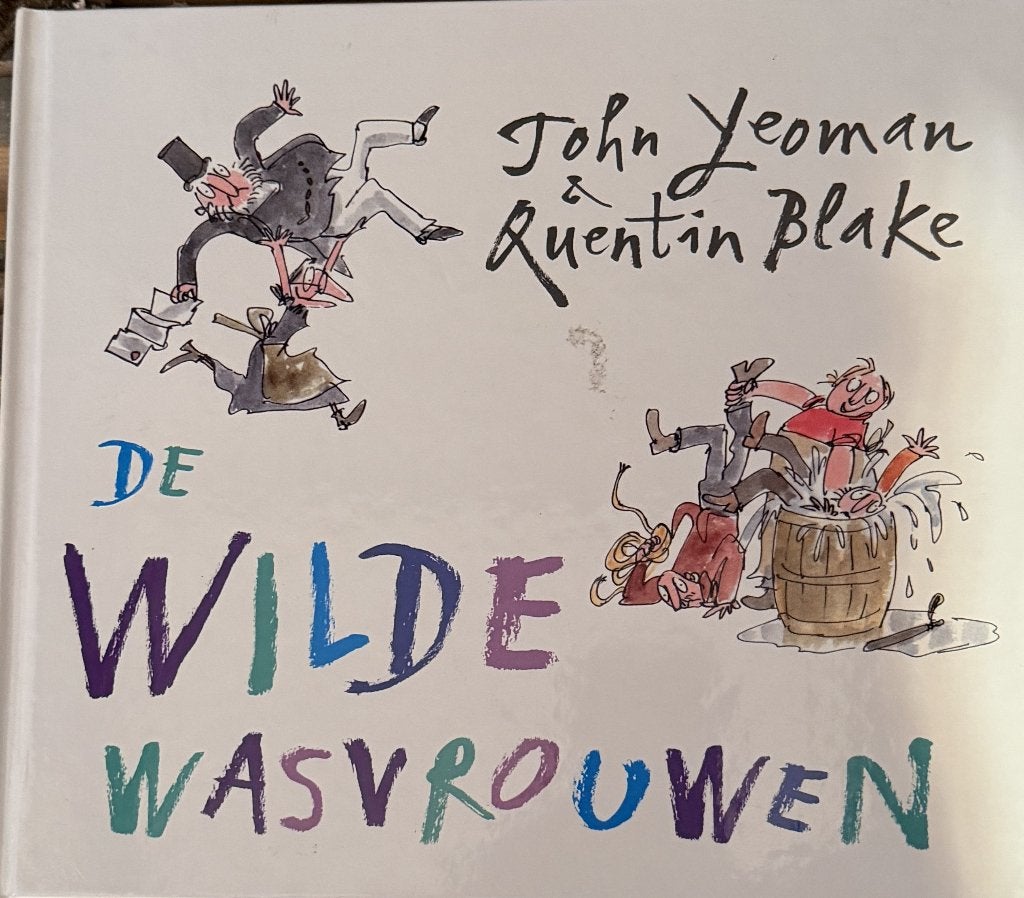 John Yeoman
&
Quentin Blake
DE
WILDE
WASVROUWEN